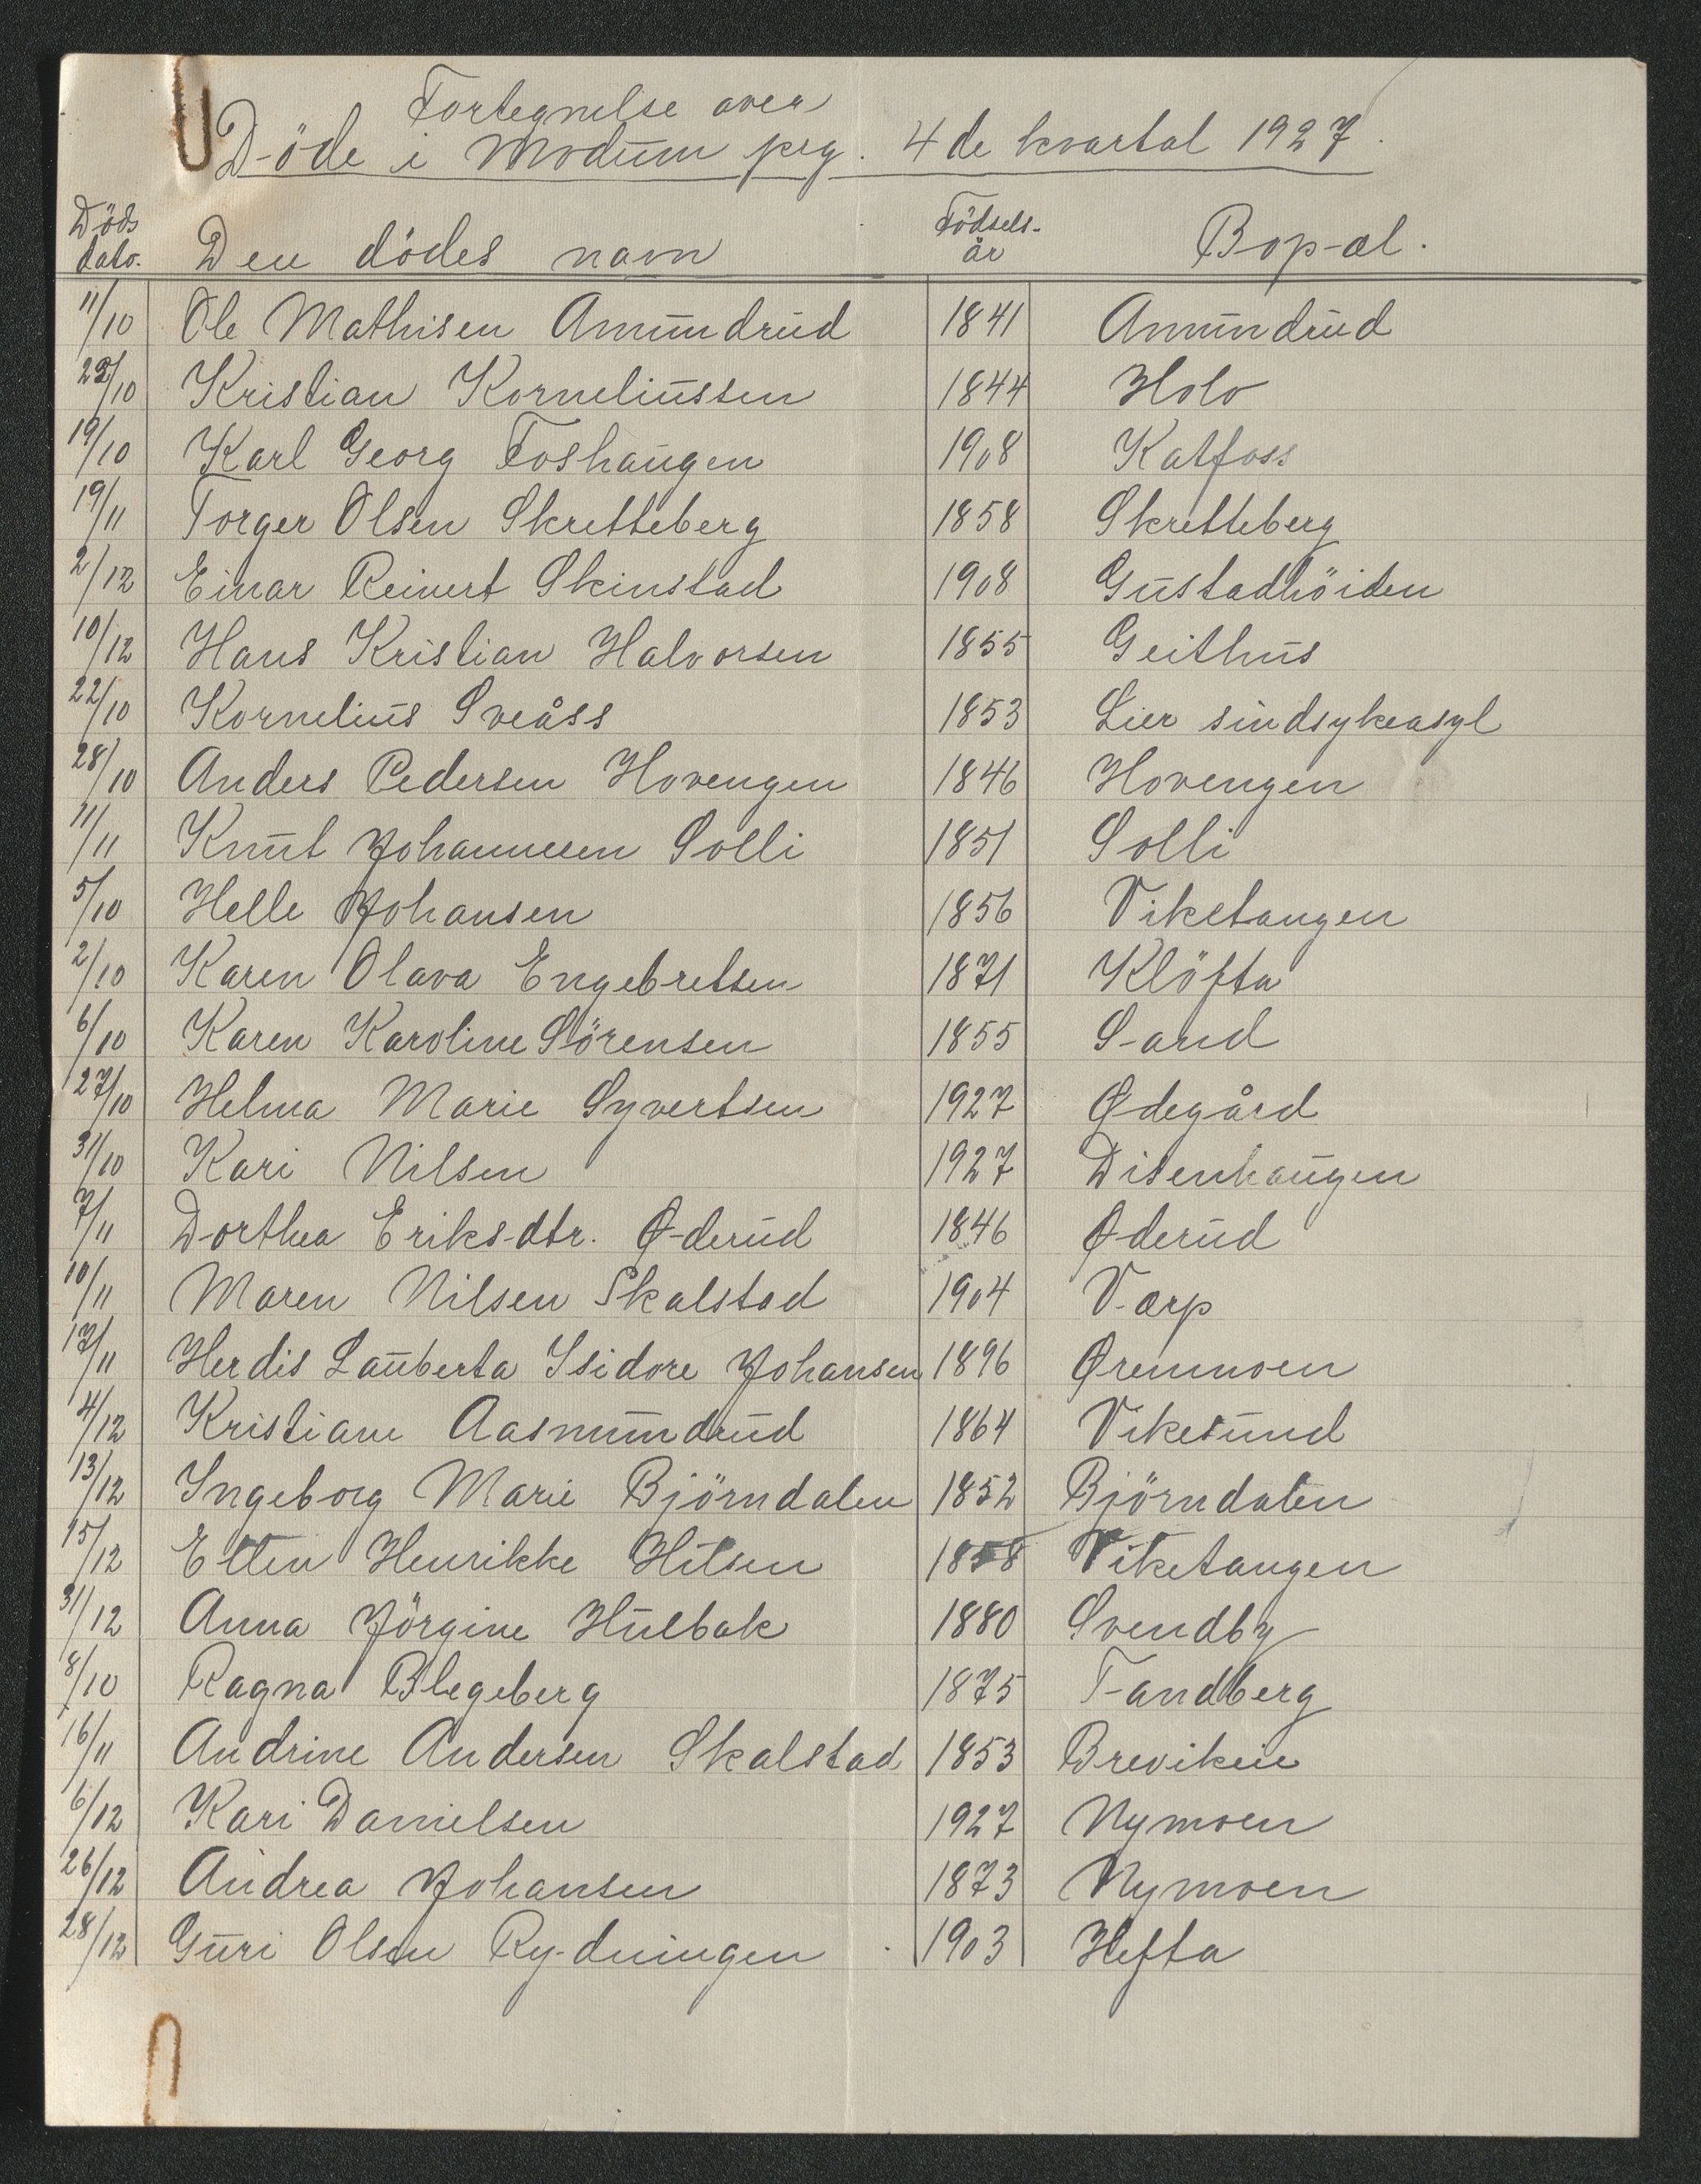 Fortegnelse over
Döde i Modum prg. 4de kvartal 1927.
Döds dato. Den dödes navn Födsels-år Bopæl.
11/10 Ole Mathisen Amundrud 1841 Amundrud
/10 Kristian Korneliussen 1844 Holo
19/10 Karl Georg Foshaugen 1908 Katfoss
19/11 Torger Olsen Skretteberg 1858 Skretteberg
2/12 Einar Reinert Skinstad 1908 Gustadhöiden
10/12 Hans Kristian Halvorsen 1855 Geithus
22/10 Kornelius Sveåss 1853 Lier sindsykeasyl
28/10 Anders Pedersen Hovengen 1846 Hovengen
11/11 Knut Johannesen Solli 1851 Solli
5/10 Helle Johansen 1856 Viketangen
2/10 Karen Olava Engebretsen 1871 Klöfta
6/10 Karen Karoline Sörensen 1855 Sand
27/10 Helma Marie Syvertsen 1927 Ødegård
31/10 Kari Nilsen 1927 Disenhaugen
7/11 Dorthea Eriks-dtr. Øderud 1846 Øderud
10/11 Maren Nilsen Skalstad 1904 Varp
17/11 Herdis Lauberta Isidore Johansen 1896 Øremoen
4/12 Kristiane Aasmundrud 1864 Vikesund
13/12 Ingeborg Marie Björndalen 1852 Björndalen
15/12 Ellen Henrikke Hilsen 1858 Viketangen
31/12 Anna Jörgine Hulbak 1880 Svendby
8/10 Ragna Blegeberg 1875 Tandberg
16/11 Andrine Andersen Skalstad 1853 Breviken
6/12 Kari Danielsen 1927 Nymoen
26/12 Andrea Johansen 1873 Nymoen
28/12 Guri Olsen Rydningen 1903 Hefta